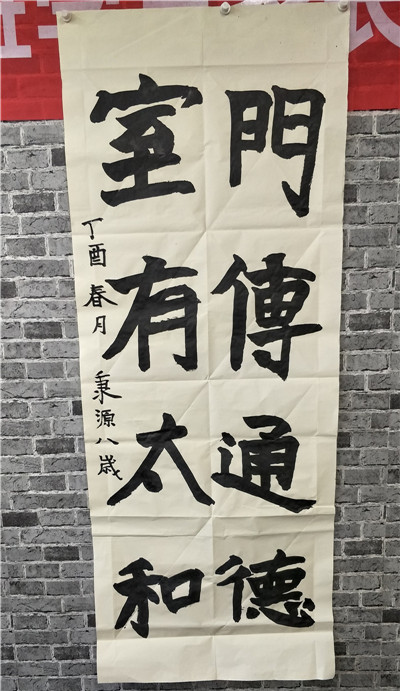 門傳通德
室有太和
丁酉春月秉源八歲